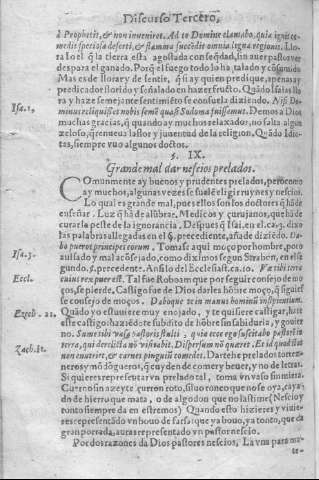 Discurso Tercero,
à Prophetis, & non inveniret. Ad te Domine clamabo, quia ignis co-
medit speciosa deserti, & flamma succēdit omnia ligna regionis. Llo-
ra Ioel q̃ la tierra està agostada con seq̃dad, sin auer pastos ver
des para el ganado. Porq̃ el fuego todo lo ha talado y cōsumido
Mas es de llorar y de sentir, q̃ si ay quien predique, apenas ay
predicador florido y señalado en hazer fruto. Quādo Isaias llo
ra y haze semejante sentimiēto se consuela diziendo. Nisi Do-
Isa. 1.
minus reliquisset nobis semē quasi Sodoma fuissemus. Demos a Dios
muchas gracias, q̃ quando ay muchos relaxados, no falta algun
zeloso, q̃ renueua pastor y juuentud de la religion. Quādo Idio-
tas, siempre vuo algunos doctos.
§. IX.
Grande mal dar nescios prelados.
COmunmente ay buenos y prudentes prelados, pero como
ay muchos, algunas vezes se suele eligir ruynes y nescios.
Lo qual es grande mal, pues ellos son los doctores q̃ hā de
enseñar. Luz q̃ hā de alūbrar. Medicos y çurujanos, que hā de
curar la peste de la ignorancia. Despues q̃ Isai. en el ca. 3. dixo
las palabras allegadas en el §. precedente, añade diziēdo. Da-
Isa. 3.
bo pueros principes eorum. Tomase aqui moço por hombre, poco
auisado y mal acōsejado, como diximos segun Straben, en el se-
gundo. §. precedente. Ansi lo del Ecclesiast. ca. 10. Væ tibi terra
Eccl.
cuius rex puer est. Tal fue Roboam que por seguir consejo de mo
ços, se pierde. Castigo fue de Dios darles hōbre moço, q̃ siguies
se consejo de moços. Daboque te in manus hominū insipientium.
Ezech. 21.
Quādo yo estuuiere muy enojado, y te quisiere castigar, harè
este castigo: haziēdote subdito de hōbre sin sabiduria, y gouier
no. Sume tibi vasa pastoris stulti, quia ecce ego suscitabo pastorē in
Zach. 11.
terra, qui derelicta nō visitabit. Dispersum nō quæret. Et id quod stat
non enutriet, & carnes pinguiū comedet. Darte he prelados torrez-
neros y mōdōgueros, q̃ cuyden de comer y beuer, y no de letras.
Si quieres representar vn prelado tal, toma vn vaso sin miera.
Curron sin azeyte, currō roto, siluo ronco que no se oya, cayā-
do de hierro que mata, o de algodon que no lastime (Nescio y
tonto siempre da en estremos) Quando esto hizieres y vinie-
res representādo vn bouo de farsa: que ya bouo, ya tonto, que dā
gran porrada, auras representado vn pastor nescio.
Por dos razones da Dios pastores nescios, La vna para ma-